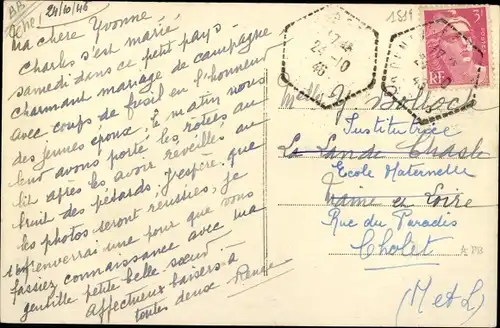 24/10/46
Ma chère Yvonne
Charles s'est marié
samedi dans ce petit pays.
Charmant mariage de campagne
avec coups de fusil en l'honneur
des jeunes époux. Le matin nous
leur avons porté les rôtées au
lit après les avoir réveillés au
bruit des pétards, J'espère que
les photos seront réussies, je
t'en enverrai une pour que vous
fassiez connaissance avec ma
gentille petite belle-sœur
Affectueux baisers à
toutes deux - Renée
17 45
24 - 10
46
RF
Melle Y.
Institutrice
La Lande Chasle
Ecole Maternelle
Maine et Loire
Rue du Paradis
Cholet
(M et L)